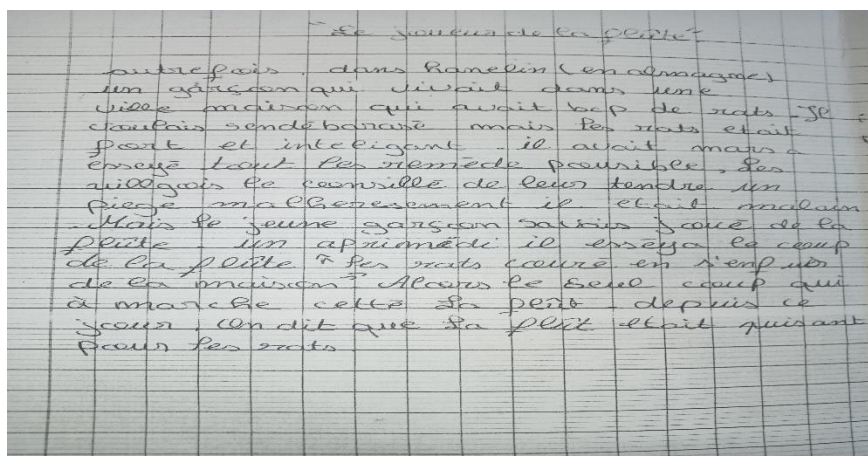 "Le joueur de la fleûte"
autrefois, dans hanelin (en almagnes)
un garscon qui vivait dans une
ville maison qui avait bcp de rats - Je
voulais sendébarasé mais les rats etait
fort et inteligant - il avait mars -
esseyé tout les remède pousible. Les
villagois le consillé de leur tendre un
piege malheresement il etait malain
- Mais le jeune garscon savais joué de la
fleûte - un apriemédi il esseya le coup
de la fleûte les rats couré en s'enfuer
de la maison Alcors le seul coup qui
à marche cette la peut - depuis ce
jour, con dit que la fleût etait
pour les rats